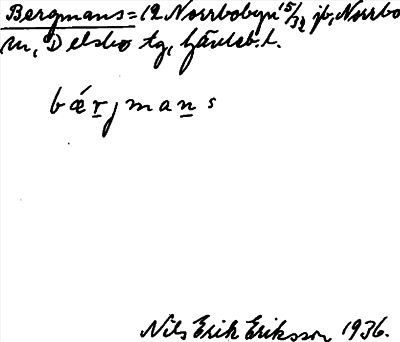 Bergmans= 12 Norrbobyn 15/32 jb, Norrbo
sn, Delsbo tg, Gävleb. l.
bǽrjmans
Nils Erik Eriksson 1936.